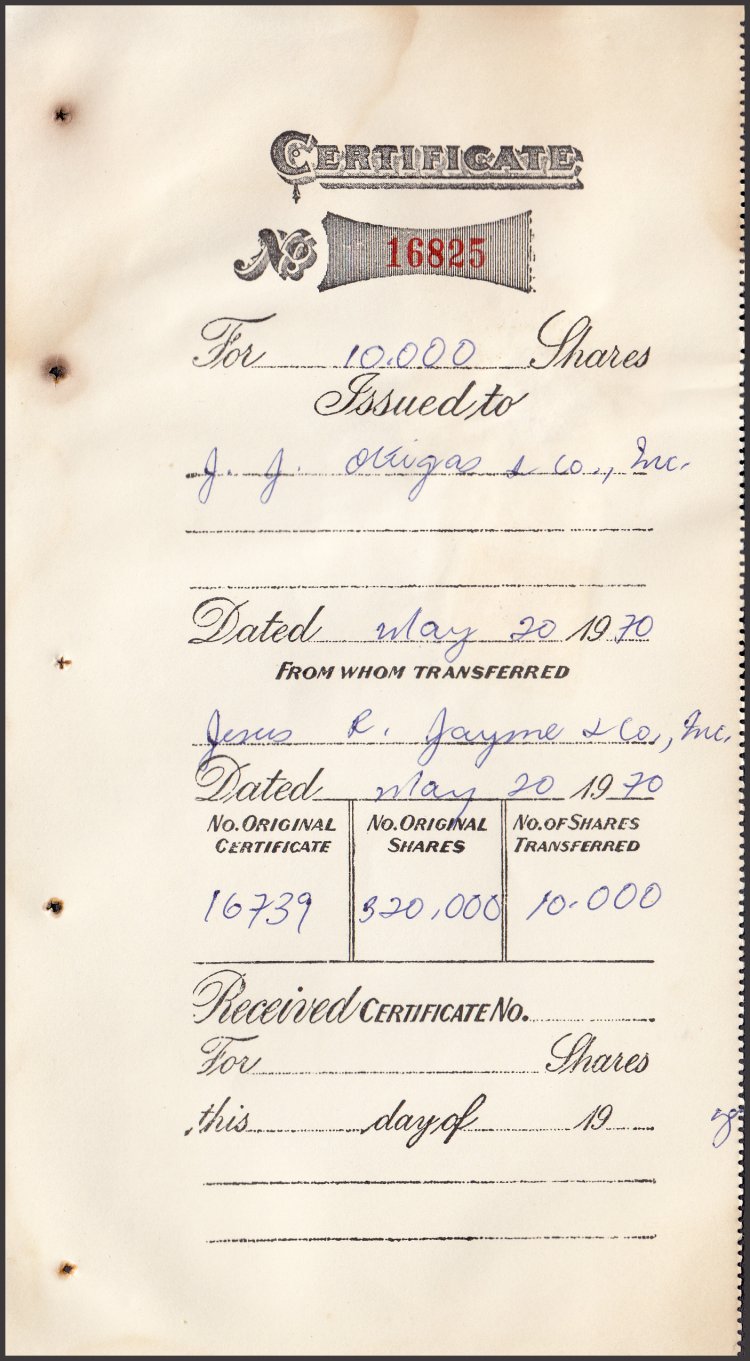 CERTIFICATE
No 16825
For 10.000 Shares
Issued to
J. J. & Co., Inc.
Dated May 20 1970
FROM WHOM TRANSFERRED
Jesus R. Jayme & Co., Inc.
Dated May 20 1970
NO. ORIGINAL CERTIFICATE
NO. ORIGINAL SHARES
NO. OF SHARES TRANSFERRED
16739 320,000 10.000
Received CERTIFICATE NO.
For Shares
this day of 19